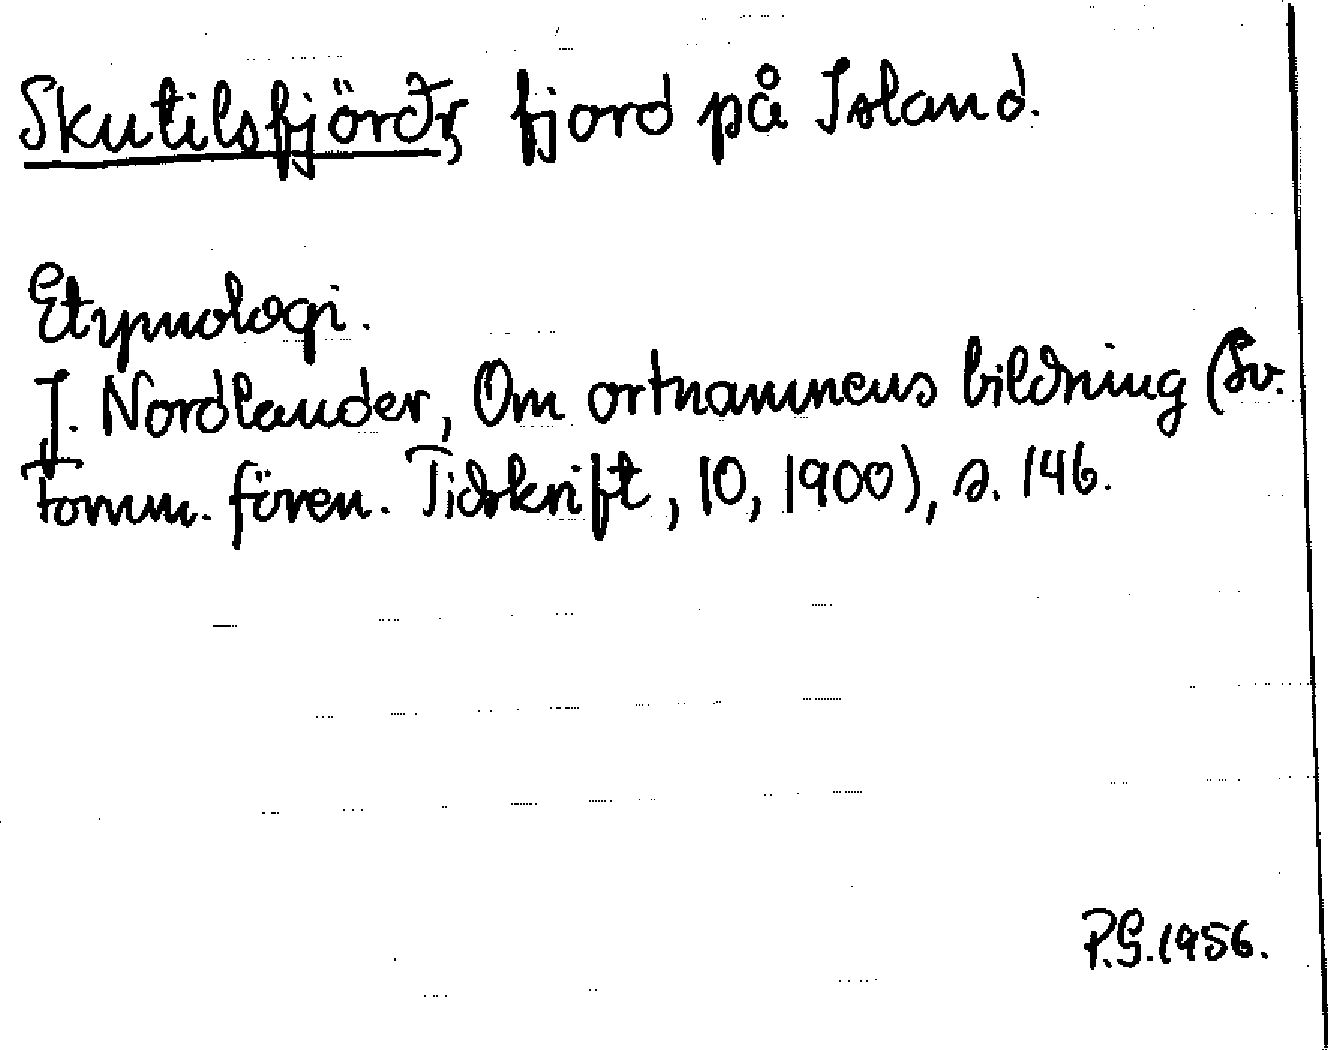 Skutilsfjörðr, fjord på Island.
Etymologi.
J. Nordlander, Om ortnamnens bildning (Sv.
Fornm. fören. Tidskrift, 10, 1900), s. 146.
P.G. 1956.